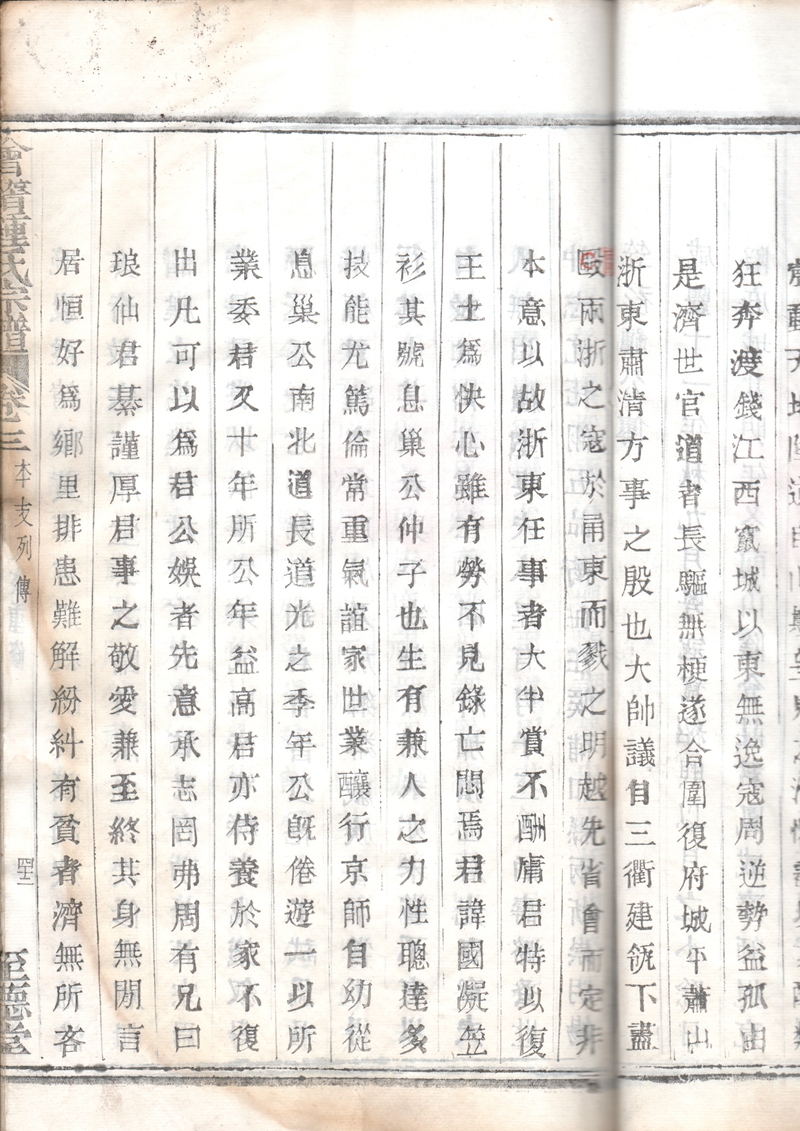 狂奔渡錢江西竄城以東無逸寇周逆勢益孤由
是濟世官道者長驅無梗遂合圍復府城平蕭山
浙東肅清方事之殷也大帥議自三衢建瓴下盡
毆兩浙之寇於甬東而戮之明越先省會而定非
本意以故浙東任事者大半賞不酬庸君特以復
王土爲快心雖有勞不見錄亡悶焉君諱國凝笠
衫其號息巢公仲子也生有兼人之力性聰達多
技能尤篤倫常重氣誼家世業釀行京師自幼從
息巢公南北道長道光之季年公旣倦遊一以所
業委君又十年所公年益高君亦侍養於家不復
出凡可以爲君公娛者先意承志罔弗周有兄曰
琅仙君綦謹厚君事之敬愛兼至終其身無閒言
居恒好爲鄉里排患難解紛糾有貧者濟無所吝
會稽鍾氏宗譜 卷之三 本支列傳 至德堂